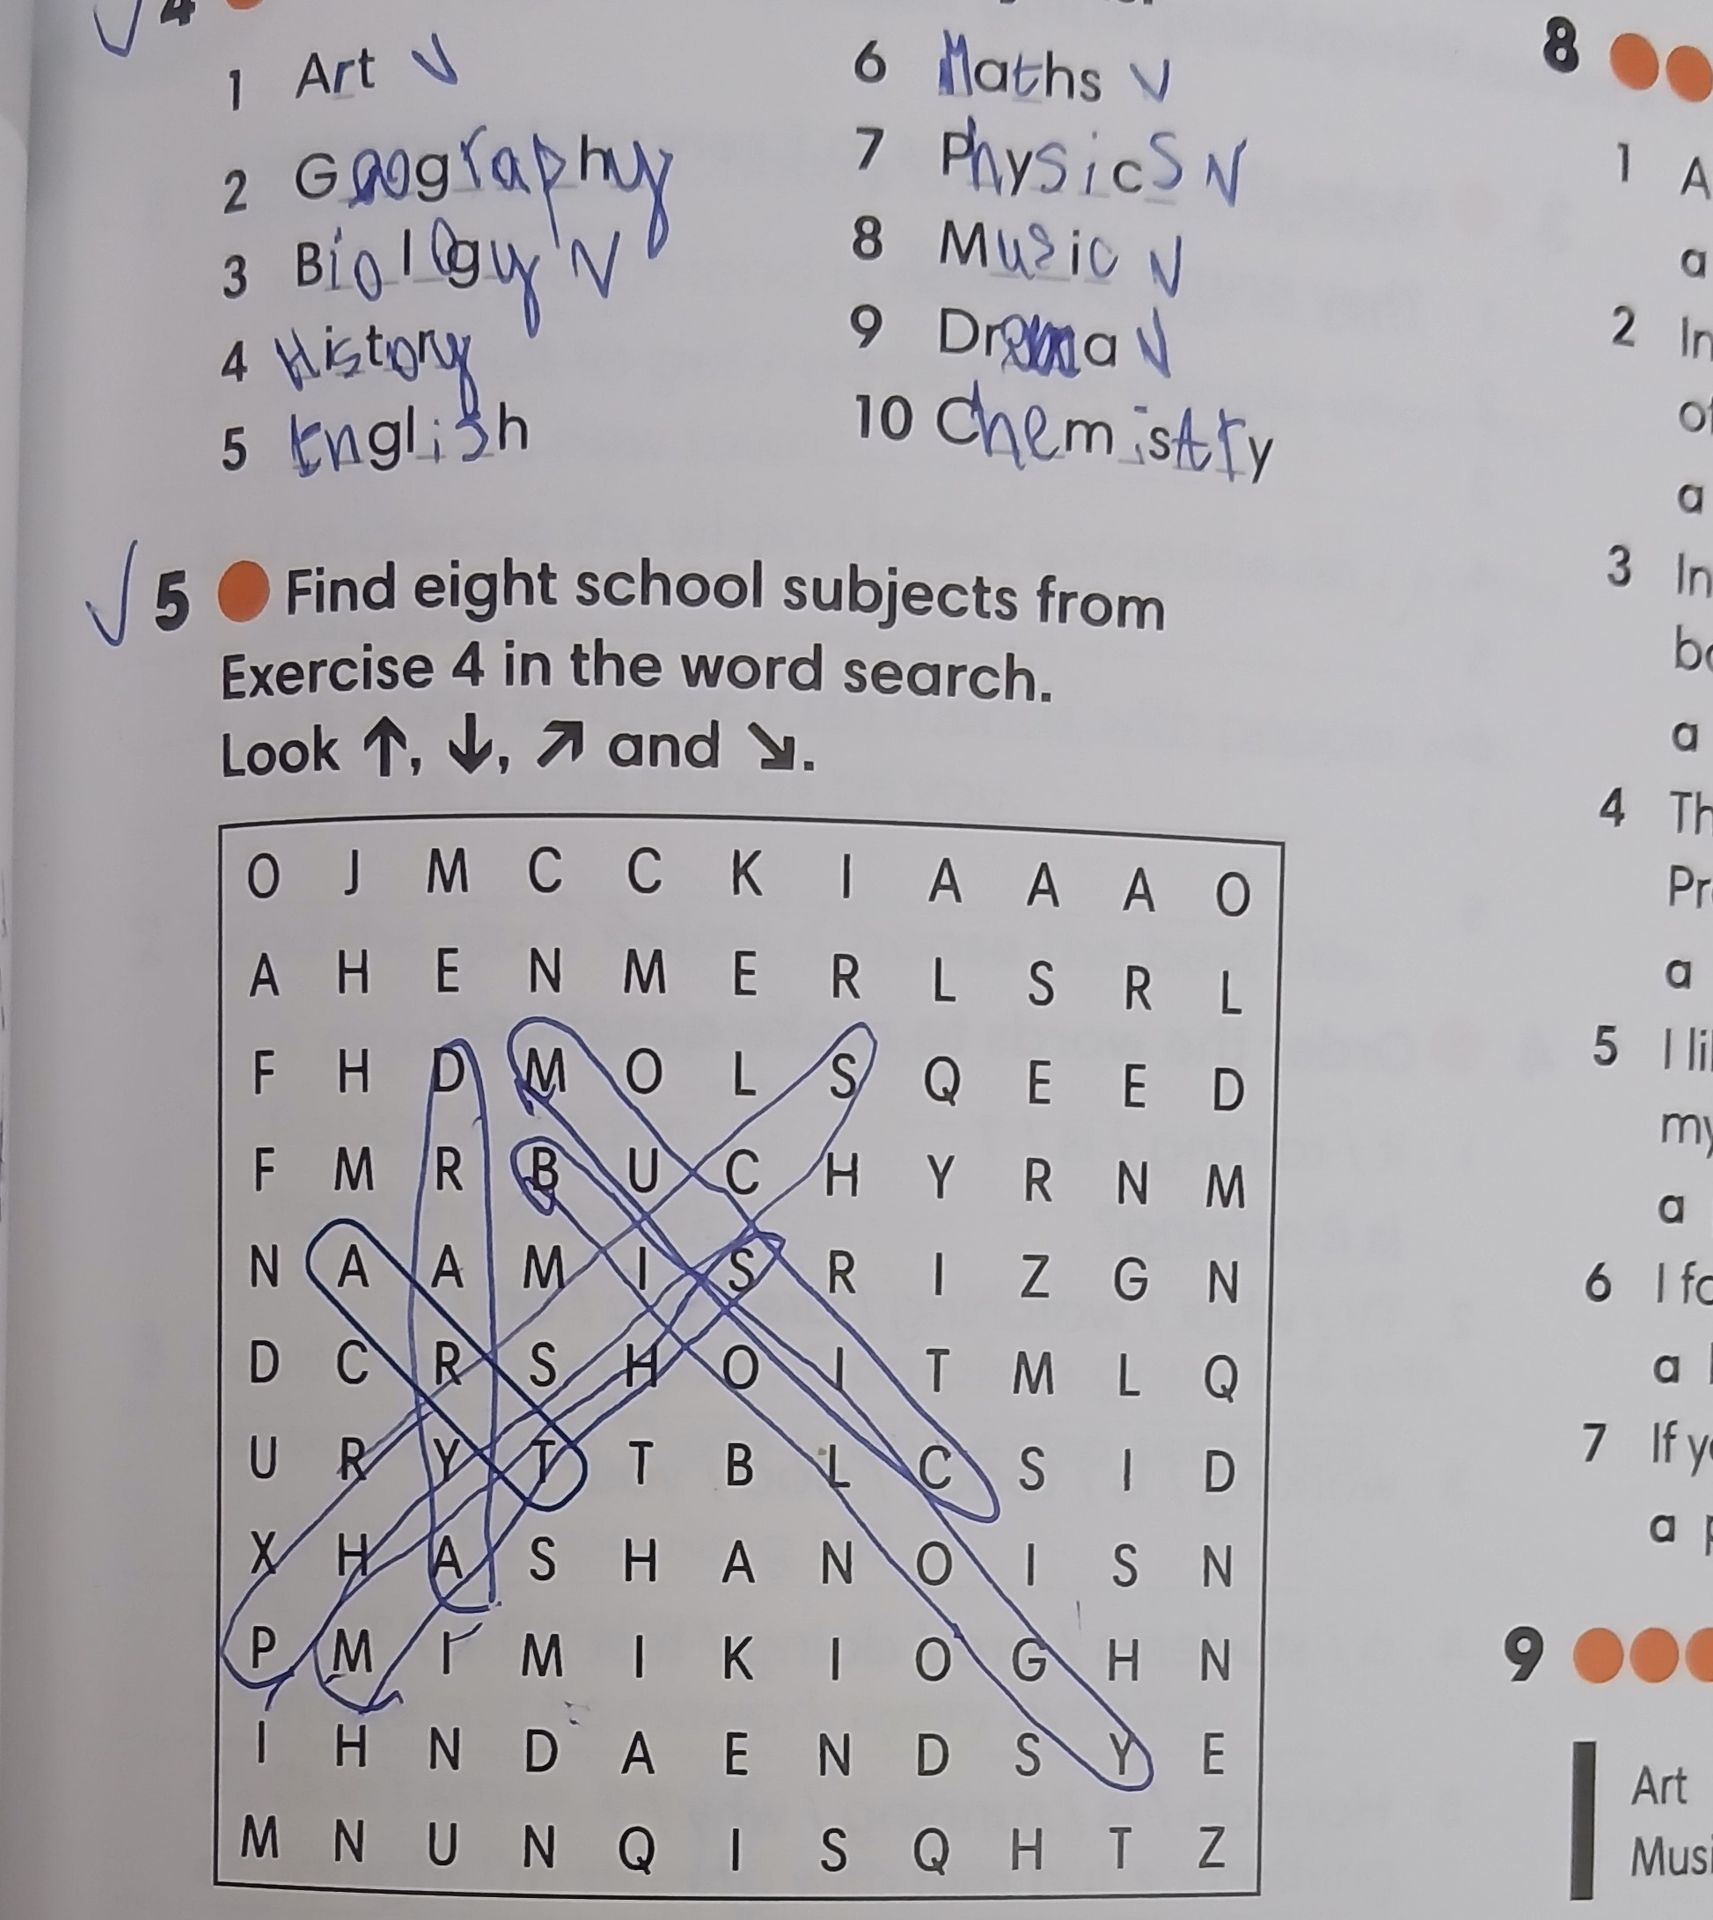 4
1 Art
2 Geography
3 Biology
4 History
5 English
6 Maths
7 Physics
8 Music
9 Drama
10 Chemistry
5 Find eight school subjects from
Exercise 4 in the word search.
Look ↑, ↓, ↗ and ↘.
O J M C C K I A A A O
A H E N M E R L S R L
F H D M O L S Q E E D
F M R B U C H Y R N M
N A A M I S R I Z G N
D C R S H O I T M L Q
U R Y T T B L C S I D
X H A S H A N O I S N
P M I M I K I O G H N
I H N D A E N D S Y E
M N U N Q I S Q H T Z
8
1 A
a
2 In
of
a
3 In
a
4 Th
Pr
a
5 I li
my
a
6 I fo
a
7 If y
a
9
Art
Musi